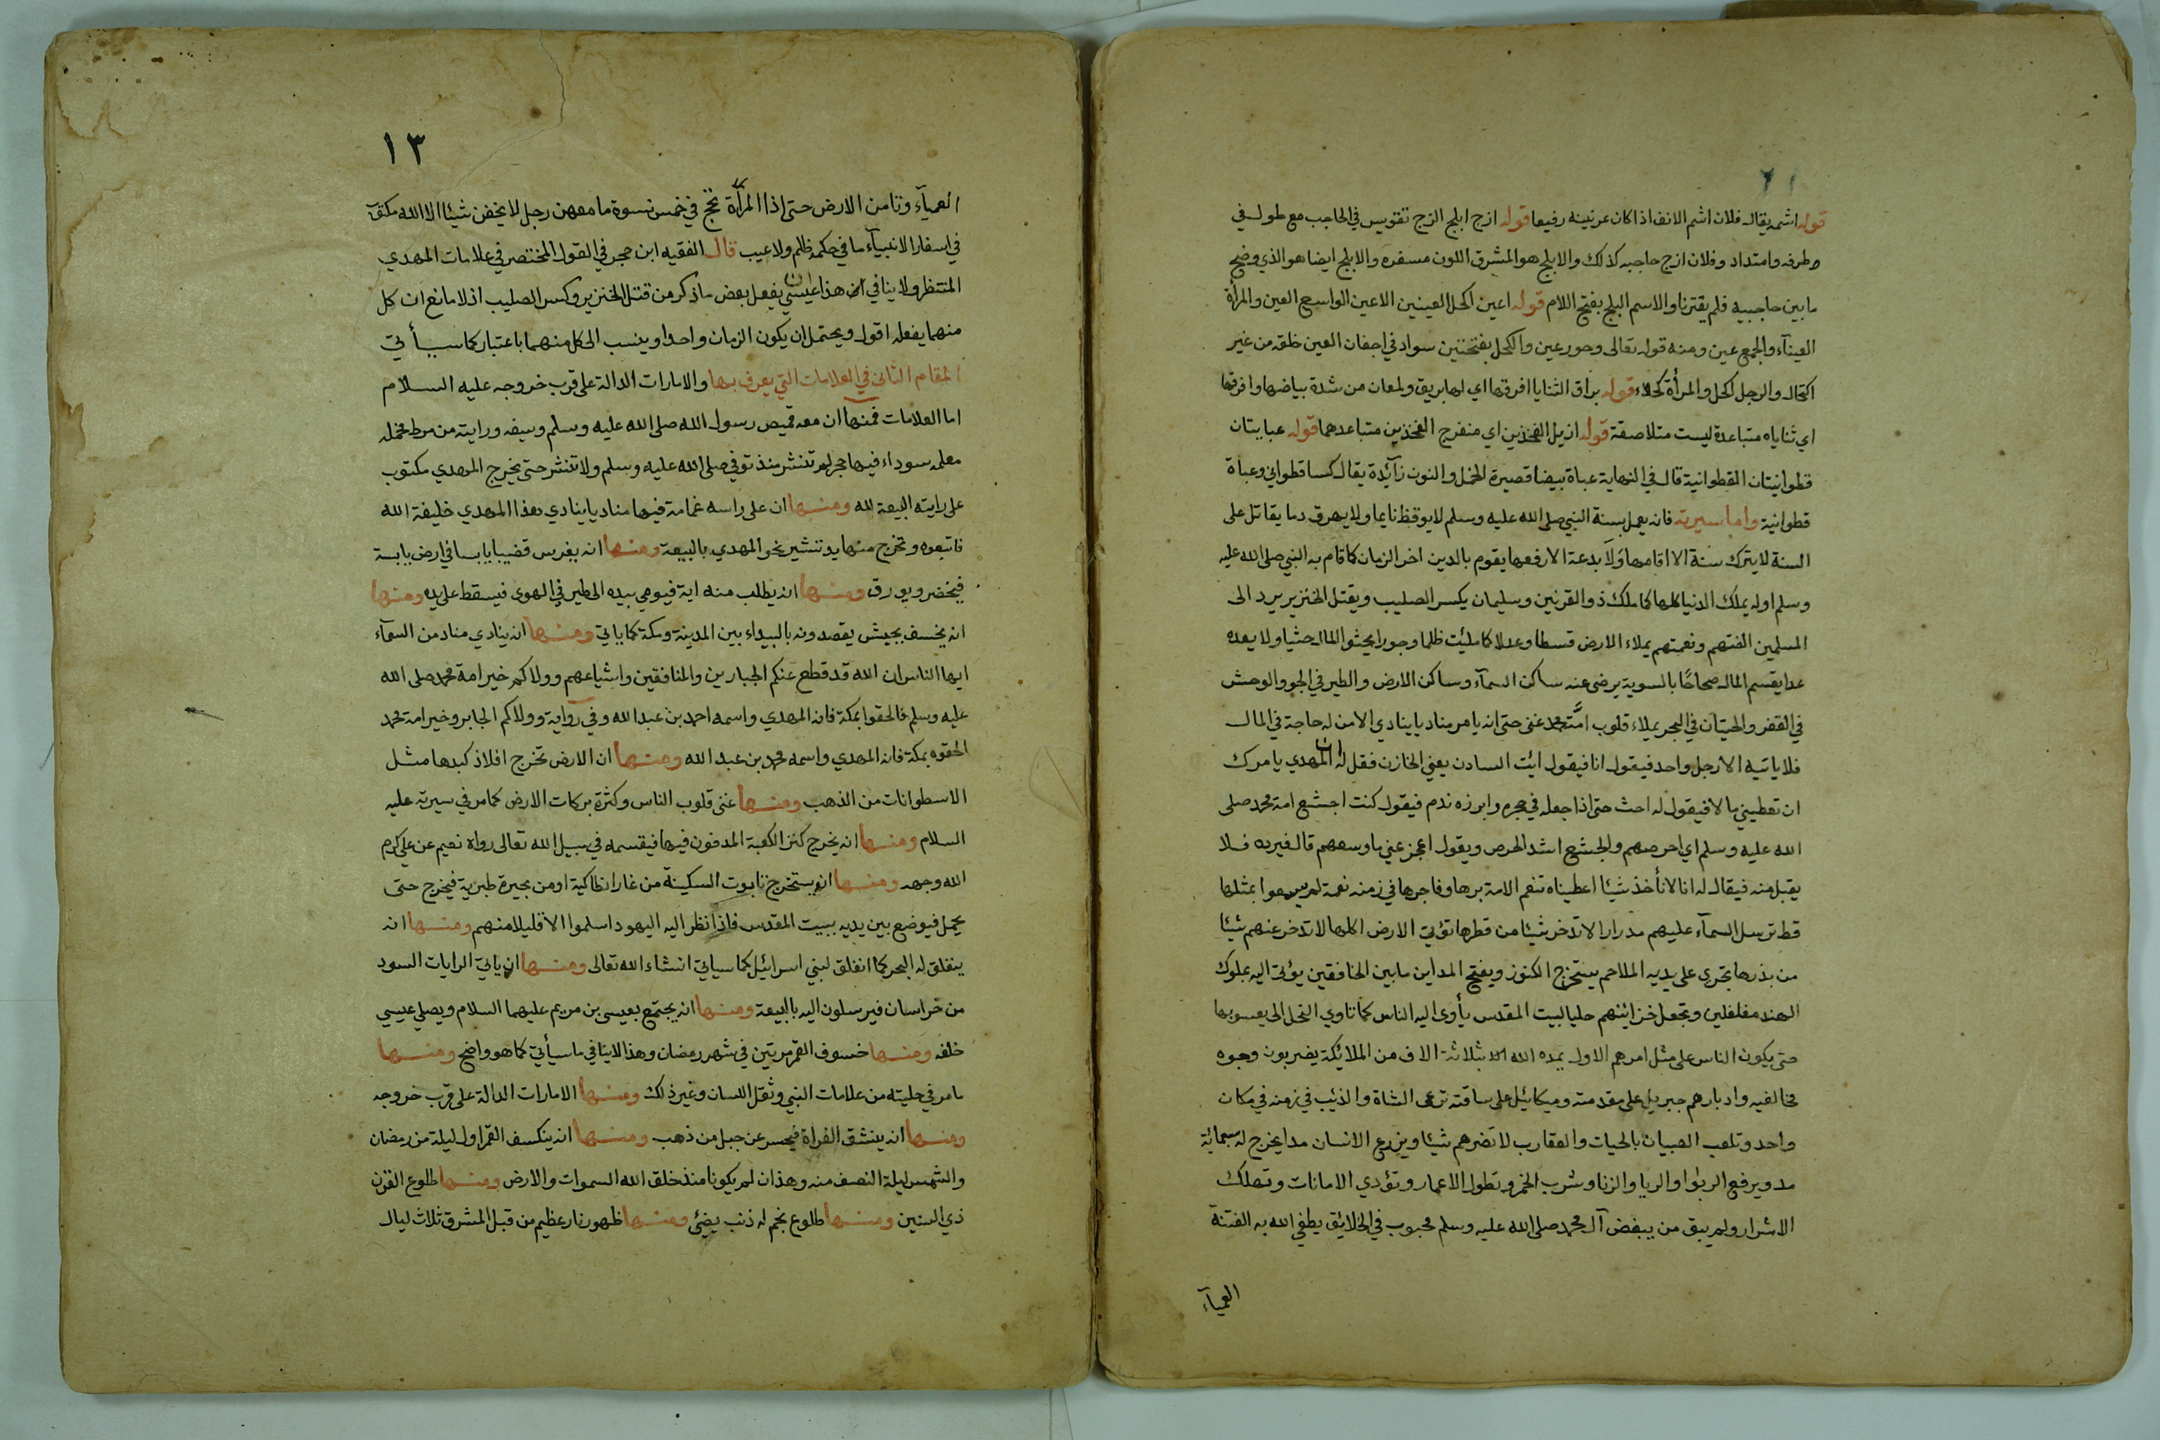 قوله اشمه يقال فلان اشم الانف اذا كان عرنينه رفيعا قوله ازج ابلج الزج تقويس في الحاجب مع طول في
طرفه وامتداد وفلان ازج حاجبه كذلك والابلج هو المشرق اللون مسفره والابلج ايضا هو الذي وضح
ما بين حاجبيه فلم يقترنا والاسم البلج بفتح اللام قوله اعين اكحل العينين الاعين الواسع العين والمرأة
العيناء والجمع عين ومنه قوله تعالى وحور عين والكحل بفتحتين سواد في اجفان العين خلقه من غير
اكتحال والرجل اكحل والمرأة كحلاء قوله براق الثنايا افرقها اي لها بريق ولمعان من شدة بياضها وافرقها
اي ثناياه متباعدة ليست متلاصقة قوله ازيل الفخذين اي منفرج الفخذين متباعدهما قوله عبايتان
قطوانيتان القطوانية قال في النهاية عباة بيضا قصيرة الخمل والنون زآئدة يقال كسا قطواني وعباة
قطوانية واما سيرته فانه يعمل بسنة النبي صلى الله عليه وسلم لا يوقظ نايما ولا يهرق دما يقاتل على
السنة لا يترك سنة الا اقامها ولا بدعة الا رفعها يقوم بالدين اخر الزمان كما قام به النبي صلى الله عليه
وسلم اوله يملك الدنيا كلها كما ملك ذو القرنين وسليمان يكسر الصليب ويقتل الخنزير يرد الى
المسلمين الفتهم ونعمتهم يملاء الارض قسطا وعدلا كما ملئت ظلما وجورا يحثوا المال حثيا ولا يعده
عدا يقسم المال صحاحًا بالسوية يرضى عنه ساكن السمآء وساكن الارض والطير في الجو والوحش
في القفر والحيتان في البحر يملاء قلوب امّة محمد غنى حتى انه يامر مناديا ينادي الا من له حاجة في المال
فلا ياتيه الا رجل واحد فيقول انا فيقول ائت السادن يعني الخازن فقل له ان المهدي يامرك
ان تعطيني مالا فيقول له احث حتى اذا جعله في حجره وابرزه ندم فيقول كنت اجشع امة محمد صلى
الله عليه وسلم اي احرصهم والجشع اشد الحرص ويقول اعجز عني ما وسعهم قال فيرده فلا
يقبل منه فيقال له انا لا نأخذ شيئا اعطيناه تنعم الامة برها وفاجرها في زمنه نعمة لم يسمعوا بمثلها
قط ترسل السمآء عليهم مدرارا لا تدخر شيئا من قطرها تؤتي الارض اكلها لا تدخر عنهم شيئا
من بذرها تجرى على يديه الملاحم يستخرج الكنوز ويفتح المداين ما بين الخافقين يؤتى اليه بملوك
الهند مغلغلين وتجعل خزائنهم حليا لبيت المقدس يأوى اليه الناس كما تاوي النحل الى يعسوبها
حتى يكون الناس على مثل امرهم الاول يمده الله بثلاثة الاف من الملائكة يضربون وجوه
مخالفيه وادبارهم جبريل على مقدمته وميكائيل على ساقته ترعى الشاة والذئب في زمنه في مكان
واحد وتلعب الصبيان بالحيات والعقارب لا تضرهم شيئا ويزرع الانسان مدا يخرج له سبعمائة
مد ويرفع الربوا والربا والزنا وشرب الخمر وتطول الاعمار وتؤدي الامانات وتهلك
الاشرار ولم يبق من يبغض آل محمد صلى الله عليه وسلم محبوب في الخلائق يطفي الله به الفتنة
العميآء
١٣
العميآء وتامن الارض حتى اذا المرأة تحج في خمس نسوة ما معهن رجل لا يخفن شيئا الا الله مكتوب
في اسفار الانبيآء ما في حكمه ظلم ولا عيب قال الفقيه ابن حجر في القول المختصر في علامات المهدي
المنتظر ولا ينافي هذا ان عيسى يفعل بعض ما ذكر من قتل الخنزير وكسر الصليب اذ لا مانع ان كل
منهما يفعله اقول ويحتمل ان يكون الزمان واحدا وينسب الى كل منهما باعتبار كما سيأتي
المقام الثانى في العلامات التي يعرف بها والامارات الدالة على قرب خروجه عليه السلام
اما العلامات فمنها ان معه قميص رسول الله صلى الله عليه وسلم وسيفه ورايته من مرط مخمله
معلمه سوداء فيها حجر لم تنشر منذ توفي صلى الله عليه وسلم ولا تنشر حتى يخرج المهدي مكتوب
على رايته البيعة لله ومنها ان على راسه غمامة فيها مناديا ينادي هذا المهدي خليفة الله
فاتبعوه وتخرج منها يد تشير نحو المهدي بالبيعة ومنها انه يغرس قضيبا يابسا في ارض يابسة
فيخضر ويورق ومنها انه يطلب منه اية فيومي بيده الى طير في الهوى فيسقط على يده ومنها
انه يخسف بجيش يقصدونه بالبيداء بين المدينة ومكة كما ياتي ومنها انه ينادي مناد من السمآء
ايها الناس ان الله قد قطع عنكم الجبارين والمنافقين واشياعهم وولاكم خير امة محمد صلى الله
عليه وسلم فالحقوا بمكة فانه المهدي واسمه احمد بن عبد الله وفي رواية وولاكم الجابر وخير امة محمد
الحقوه بمكة فانه المهدي واسمه محمد بن عبد الله ومنها ان الارض تخرج افلاذ كبدها مثل
الاسطوانات من الذهب ومنها غنى قلوب الناس وكثرة بركات الارض كما مر في سيرته عليه
السلام ومنها انه يخرج كنز الكعبة المدفون فيها فيقسمه في سبيل الله تعالى رواه نعيم عن علي كرم
الله وجهه ومنها انه يستخرج تابوت السكينة من غار انطاكية او من بحيرة طبرية فيخرج حتى
يحمل فيوضع بين يديه ببيت المقدس فاذا نظر اليه اليهود اسلموا الا قليلا منهم ومنها انه
ينفلق له البحر كما انفلق لبني اسرائيل كما سياتي انشاء الله تعالى ومنها ان ياتي الرايات السود
من خراسان فيرسلون اليه بالبيعة ومنها انه يجتمع بعيسى بن مريم عليهما السلام ويصلي عيسى
خلفه ومنها خسوف القمر مرتين في شهر رمضان وهذا لا ينافي ما سيأتي كما هو واضح ومنها
ما مر في حليته من علامات النبي وثقل اللسان وغير ذلك ومنها الامارات الدالة على قرب خروجه
ومنها انه ينشق الفراة فيحسر عن جبل من ذهب ومنها انه ينكسف القمر اول ليلة من رمضان
والشمس ليلة النصف منه وهذان لم يكونا منذ خلق الله السموات والارض ومنها طلوع القرن
ذي السنين ومنها طلوع نجم له ذنب يضئ ومنها ظهور نار عظيم من قبل المشرق ثلاث ليال